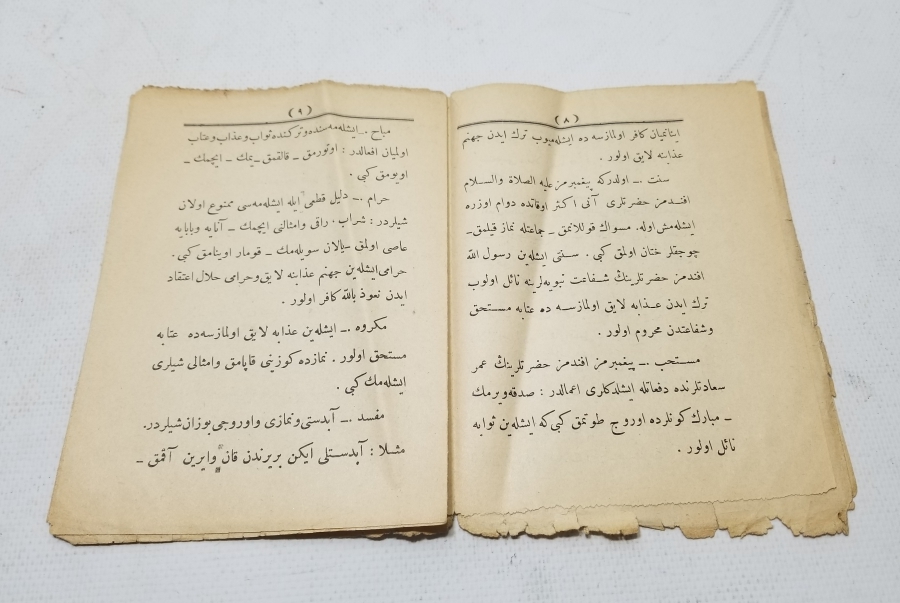 ( ٨ )
ايناتميان كافر اولمازسه ده ايشله‌ميوب ترك ايدن جهنم
عذابنه لايق اولور .
سنت ‏ــ اولدركه پيغمبرمز عليه الصلاة والســلام
افنـدمز حضرتلرى آنى اكثر اوقاتده دوام اوزره
ايشله‌مش اوله. مسواك قوللانمق ـ جماعتله نماز قيلمق ـ
چوجقلر ختان اولمق كبى . سـنتى ايشله‌ين رسول الله
افندمز حضرتلرينڭ شـفاعت نبويه‌لرينه نائل اولوب
ترك ايدن عـذابه لايق اولمازسـه ده عتابه مسـتحق
وشفاعتدن محروم اولور .
مستحب ‏ــ پيغمبرمز افندمز حضرتلرينڭ عمر
سعادتلرنده دفعاتله ايشلدكلرى اعمالدر : صدقه ويرمك
ـ مبارك كونلرده اوروج طوتمق كبى كه ايشله‌ين ثوابه
نائل اولور .
( ٩ )
مباح ‏ــ ايشله‌مه‌سنده وتركنده ثواب وعذاب وعتاب
اولميان افعالدر : اوتورمق ـ قالقمق ـ يمك ـ ايچمك ـ
اويومق كبى .
حرام ‏ــ دليل قطعى ايله ايشله‌مه‌سى ممنوع اولان
شيلردر : شراب . راقى وامثالنى ايچمك ـ آنايه وبابايه
عاصى اولمق ـ يالان سويله‌مك ـ قومار اوينامق كبى .
حرامى ايشله‌ين جهنم عذابنه لايق وحرامى حلال اعتقاد
ايدن نعوذ بالله كافر اولور .
مكروه ‏ــ ايشله‌ين عذابه لايق اولمازسه‌ده عتابه
مستحق اولور . نمازده كوزينى قاپامق وامثالى شيلرى
ايشله‌مك كبى .
مفسد ‏ــ آبدستى ونمازى واوروجى بوزان شيلردر.
مثـلا : آبدسـتلى ايكن بر يرندن قان وايرين آقمق ـ